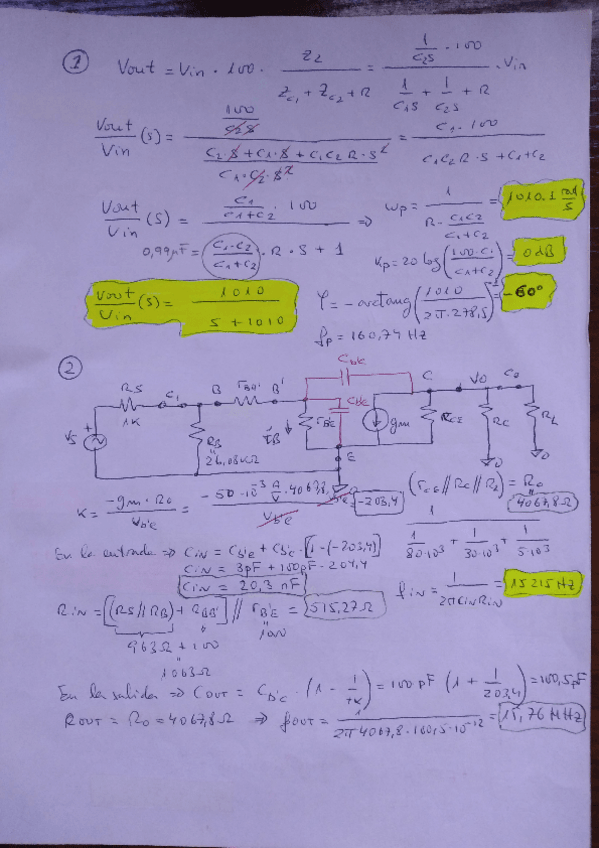 ① Vout = Vin · 100 · Z2 / (Zc1 + Zc2 + R) = (1/(C2S) · 100) / (1/(C1S) + 1/(C2S) + R) · Vin
Vout/Vin (s) = (100/(C2S)) / ((C2·S + C1·S + C1C2R·S²) / (C1·C2·S²)) = C1·100 / (C1C2R·S + C1 + C2)
Vout/Vin (s) = (C1/(C1+C2) · 100) / ((C1·C2)/(C1+C2) · R · S + 1) ⇒ Wp = 1 / (R · C1C2/(C1+C2)) = 1010.1 rad/s
0,99µF =
Kp = 20 log(100·C1/(C1+C2)) = 0dB
Vout/Vin (s) = 1010 / (S + 1010)
φ = -arctang(1010/(2π·278,5)) = -60°
fp = 160,74 Hz
②
RS 1K C1 B rBB' B' Cb'c C VO Co
VS + RB 26,03KΩ iB rB'E Cb'e gm RCE RC RL
E
K = -gm · Ro / Vb'e = -50·10⁻³ A/V · 4067,8 · Vb'e / Vb'e = -203,4
(rCE // RC // RL) = Ro
4067,8Ω
1 / (1/80·10³ + 1/30·10³ + 1/5·10³)
En la entrada ⇒ CIN = Cb'e + Cb'c · [1 - (-203,4)]
CIN = 3pF + 100pF · 204,4
CIN = 20,3 nF
fIN = 1 / (2πCINRIN) = 15215 Hz
RIN = [(RS // RB) + RBB'] // rB'E = 515,27Ω
963Ω + 100
1000
1063Ω
En la salida ⇒ COUT = Cb'c · (1 - 1/K) = 100pF (1 + 1/203,4) = 100,5pF
ROUT = RO = 4067,8Ω ⇒ fOUT = 1 / (2π 4067,8 · 100,5·10⁻¹²) = 15,76 MHz